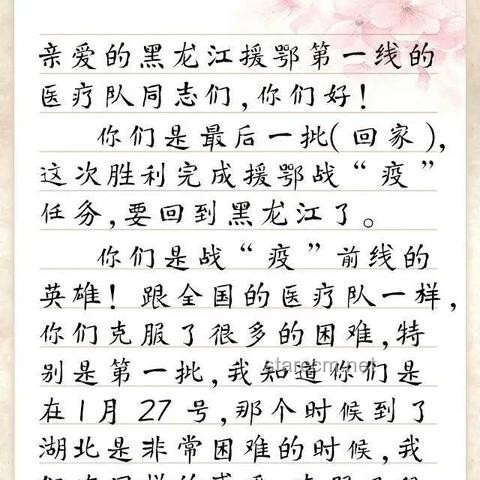 亲爱的黑龙江援鄂第一线的
医疗队同志们,你们好!
你们是最后一批(回家),
这次胜利完成援鄂战“疫”
任务,要回到黑龙江了。
你们是战“疫”前线的
英雄!跟全国的医疗队一样,
你们克服了很多的困难,特
别是第一批,我知道你们是
在1月27号,那个时候到了
湖北是非常困难的时候,我